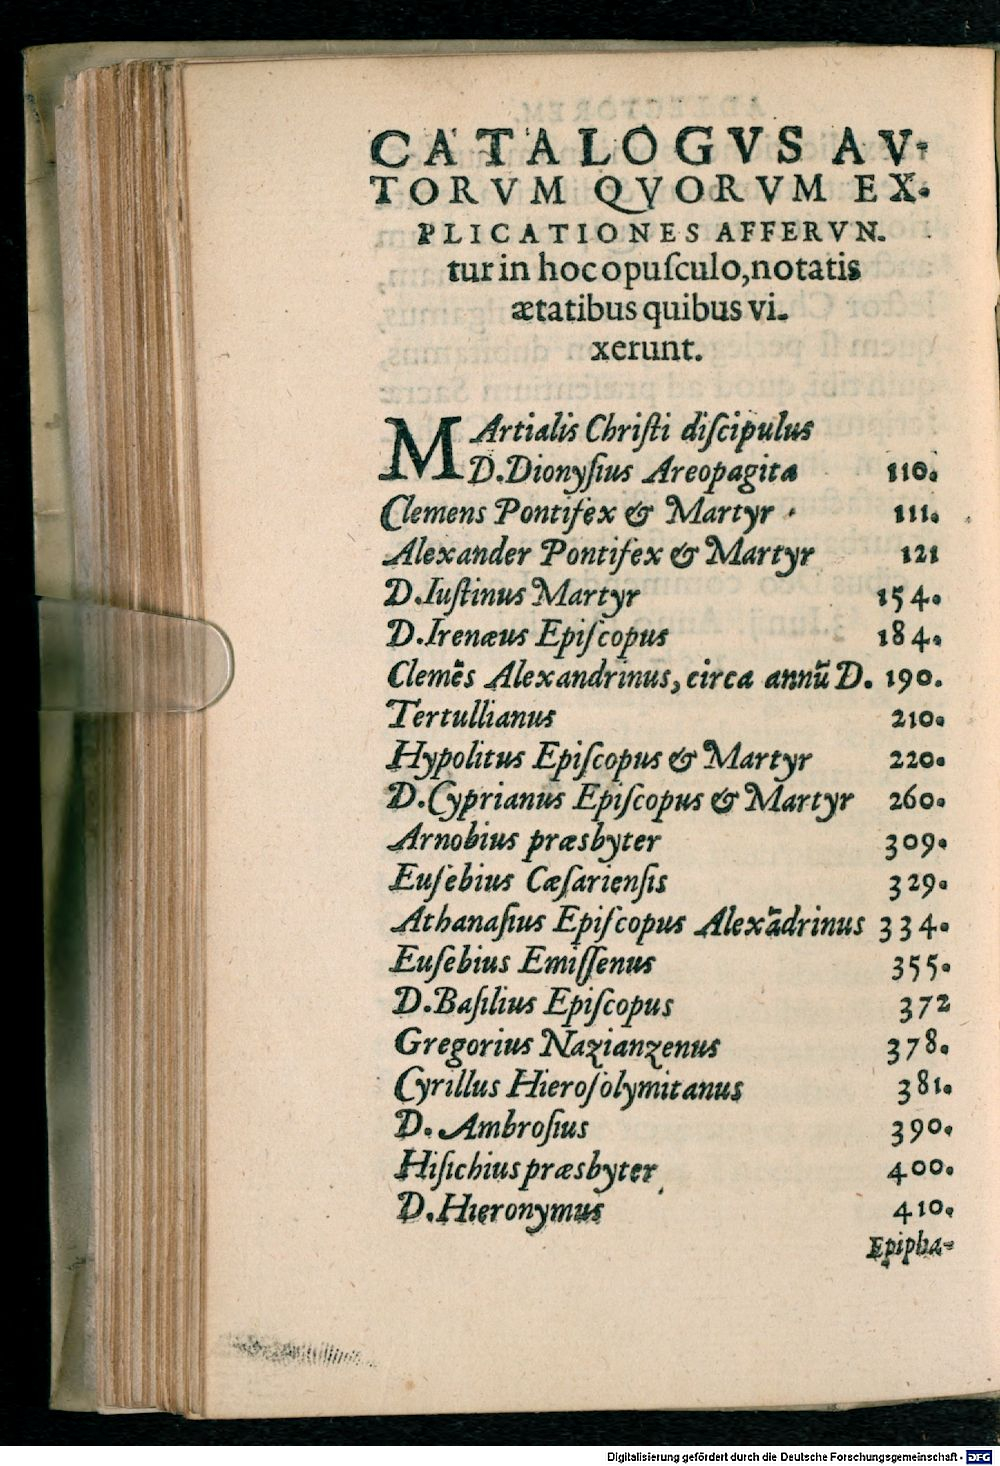 CATALOGVS AV-
TORVM QVORVM EX-
PLICATIONES AFFERVN-
tur in hoc opuſculo, notatis
ætatibus quibus vi-
xerunt.
MArtialis Chriſti diſcipulus
D. Dionyſius Areopagita 110.
Clemens Pontifex & Martyr 111.
Alexander Pontifex & Martyr 121
D. Iuſtinus Martyr 154.
D. Irenæus Epiſcopus 184.
Clemẽs Alexandrinus, circa annũ D. 190.
Tertullianus 210.
Hypolitus Epiſcopus & Martyr 220.
D. Cyprianus Epiſcopus & Martyr 260.
Arnobius præsbyter 309.
Euſebius Cæſarienſis 329.
Athanaſius Epiſcopus Alexãdrinus 334.
Euſebius Emiſſenus 355.
D. Baſilius Epiſcopus 372
Gregorius Nazianzenus 378.
Cyrillus Hieroſolymitanus 381.
D. Ambroſius 390.
Hiſichius præsbyter 400.
D. Hieronymus 410.
Epipha-
Digitalisierung gefördert durch die Deutsche Forschungsgemeinschaft - DFG